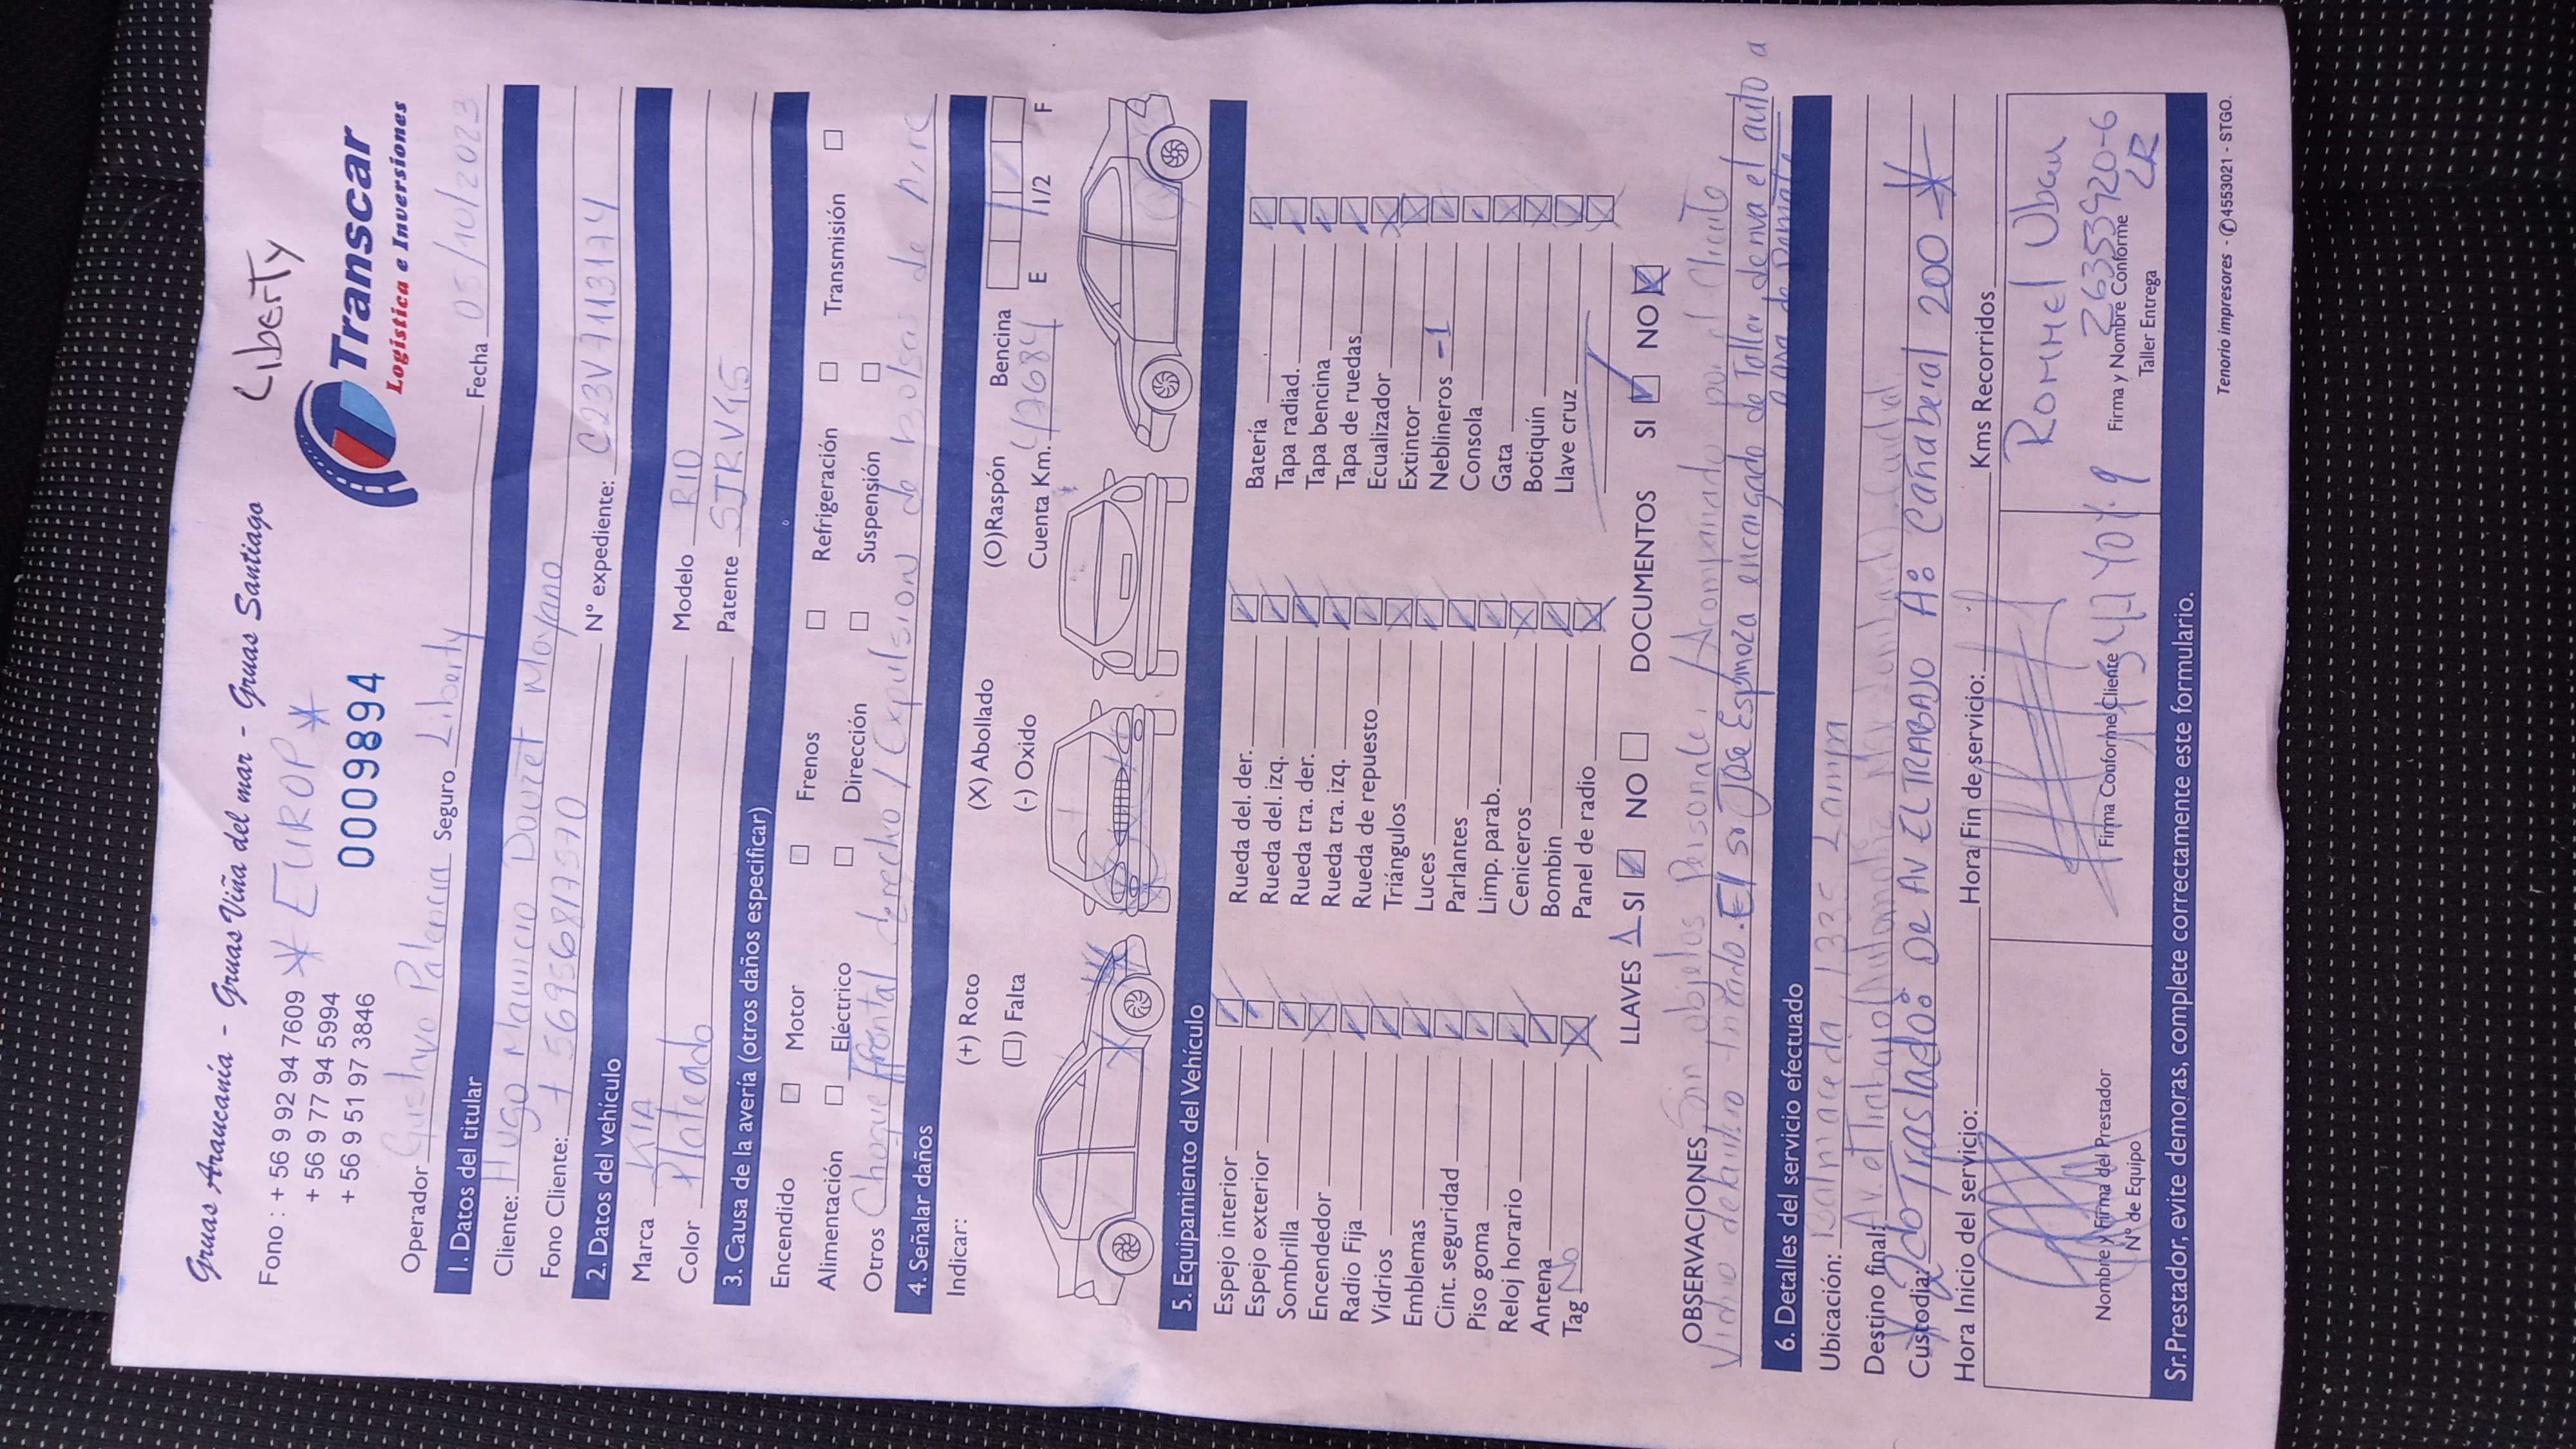 Gruas Araucanía - Gruas Viña del mar - Gruas Santiago
Liberty
Fono : + 56 9 92 94 7609 * EUROP *
+ 56 9 77 94 5994
+ 56 9 51 97 3846
0009894
Transcar
Logística e Inversiones
Operador Gustavo Palencia Seguro Liberty Fecha 05/10/2023
1. Datos del titular
Cliente: Hugo Mauricio Douzet Moyano
Fono Cliente: + 56956817570 N° expediente: C23V7113174
2. Datos del vehículo
Marca KIA Modelo RIO
Color Plateado Patente SJRV45
3. Causa de la avería (otros daños especificar)
Encendido Motor Frenos Refrigeración Transmisión
Alimentación Eléctrico Dirección Suspensión
Otros Choque Frontal derecho / Expulsion de Bolsas de Aire
4. Señalar daños
Indicar: (+) Roto (X) Abollado (O)Raspón Bencina
(□) Falta (-) Oxido Cuenta Km. 47684 E 1/2 F
5. Equipamiento del Vehículo
Espejo interior Rueda del. der. Batería
Espejo exterior Rueda del. izq. Tapa radiad.
Sombrilla Rueda tra. der. Tapa bencina
Encendedor Rueda tra. izq. Tapa de ruedas
Radio Fija Rueda de repuesto Ecualizador
Vidrios Triángulos Extintor
Emblemas Luces Neblineros -1
Cint. seguridad Parlantes Consola
Piso goma Limp. parab. Gata
Reloj horario Ceniceros Botiquín
Antena Bombin Llave cruz
Tag No Panel de radio
LLAVES 1 SI NO DOCUMENTOS SI NO
OBSERVACIONES Sin objetos Personale. Acompañado por el Cliente
Vidrio delantero trizado. El sr Jose Espinoza encargado de Taller deriva el auto a
6. Detalles del servicio efectuado
Ubicación: Balmaceda 1335 Lampa
Destino final: Av el Trabajo
Custodia: * 2do Traslado: De AV EL TRABAJO A: Cañaberal 200 *
Hora Inicio del servicio: Hora Fin de servicio: Kms Recorridos
Rommel Ubau
26353920-6
LR
Nombre y Firma del Prestador Firma Conforme Cliente Firma y Nombre Conforme
N° de Equipo Taller Entrega
Sr.Prestador, evite demoras, complete correctamente este formulario.
Tenorio impresores - ✆4553021 - STGO.